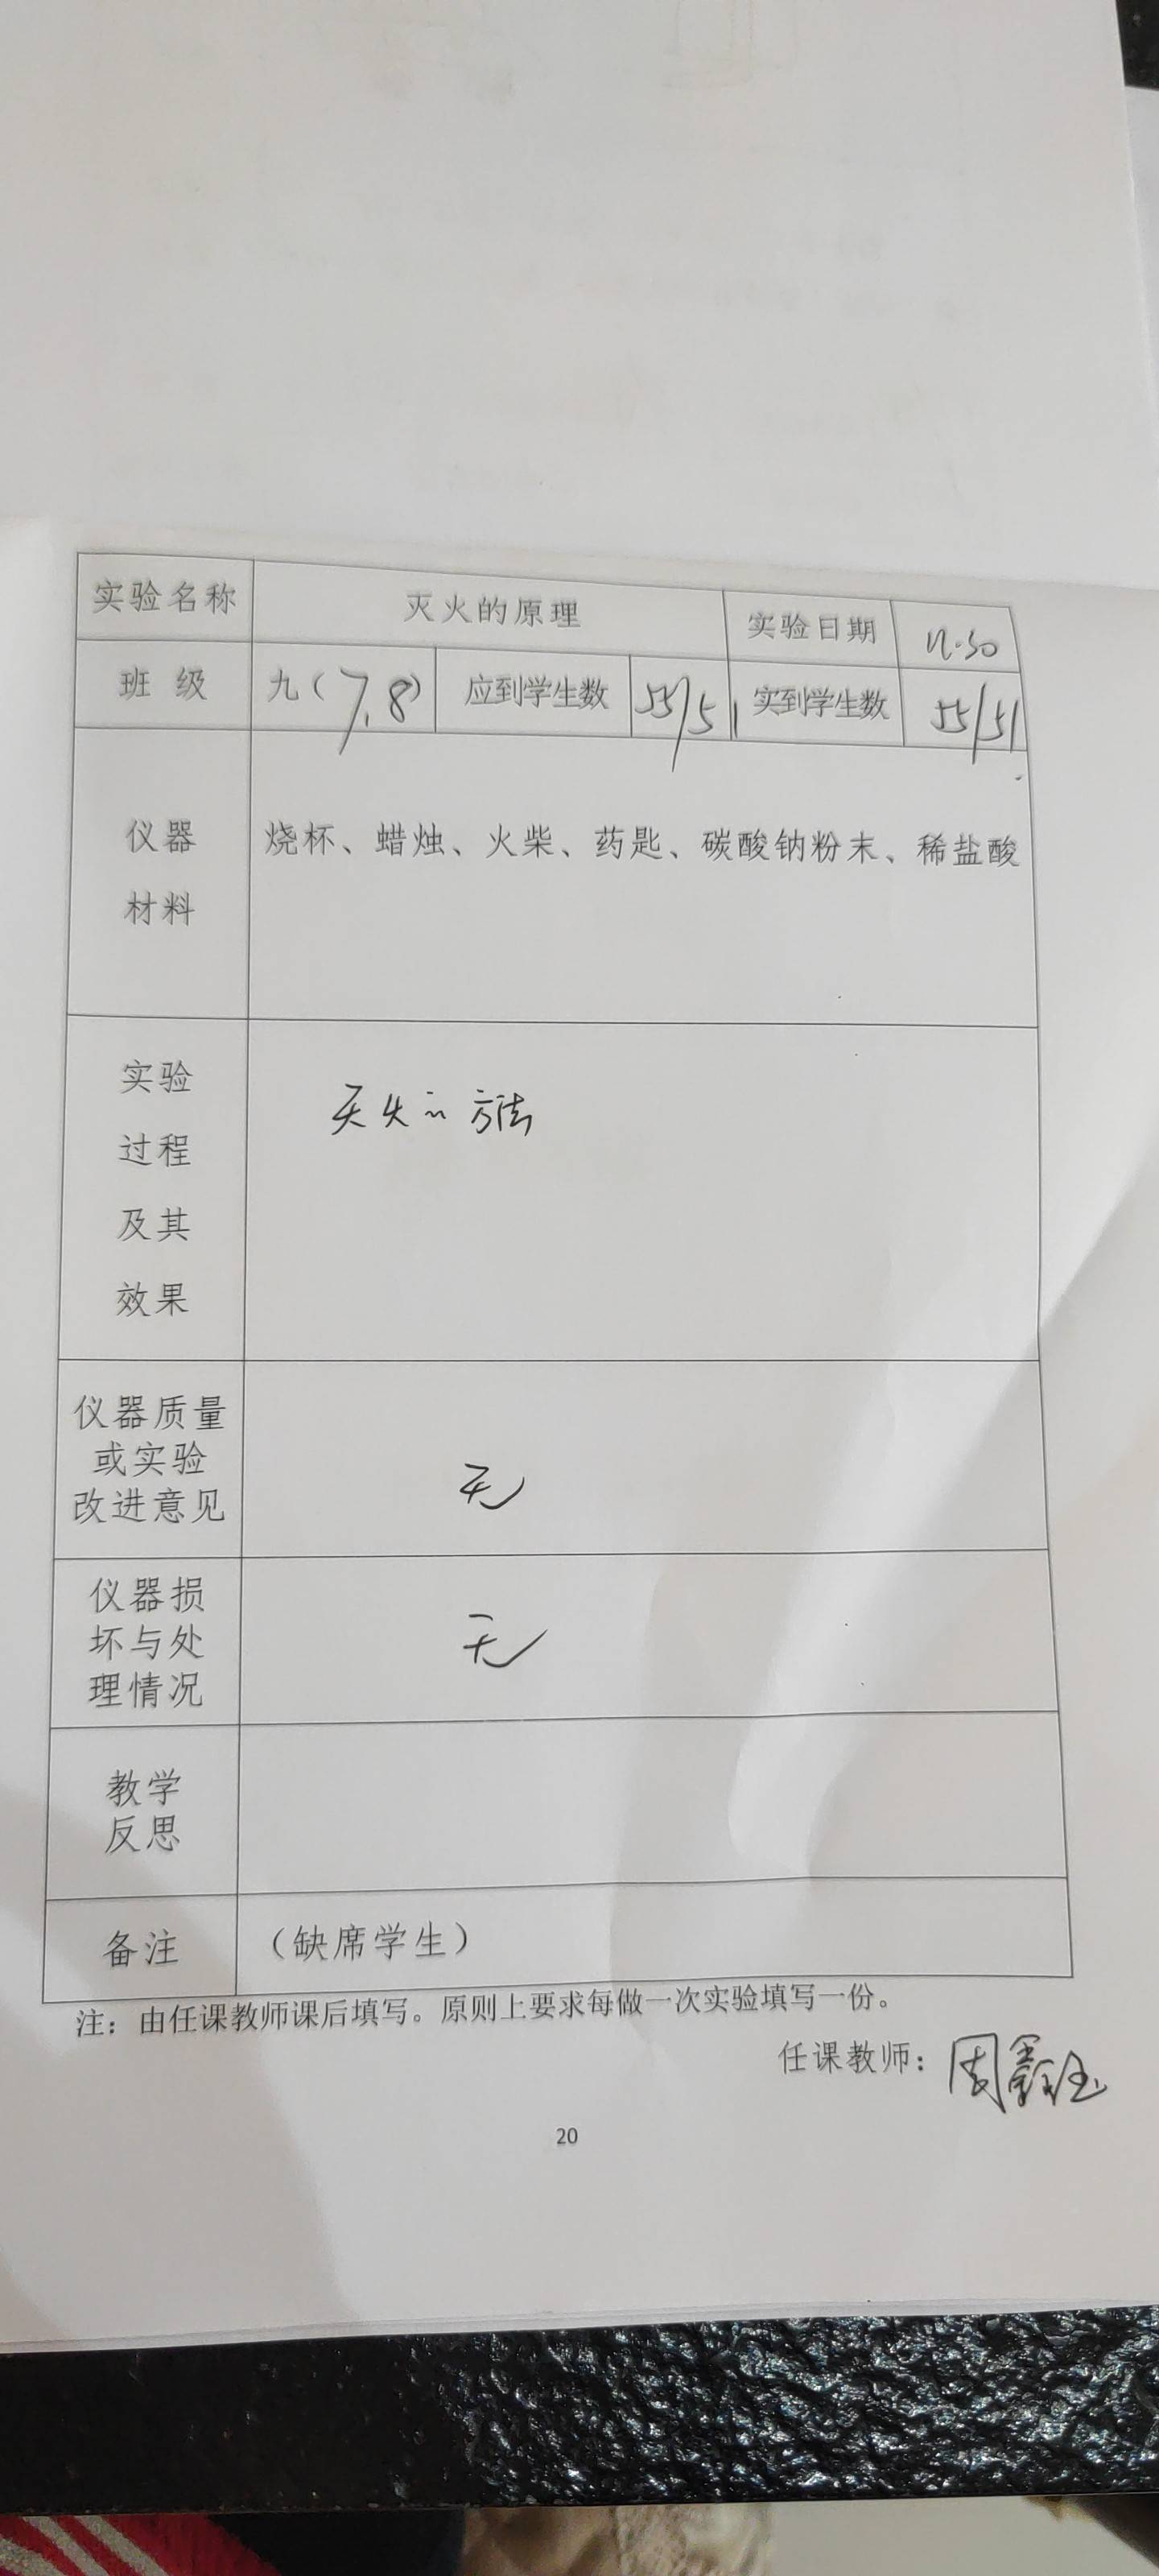 实验名称 灭火的原理 实验日期
班 级 九（7.8） 应到学生数 55/51 实到学生数 55/51
仪器 烧杯、蜡烛、火柴、药匙、碳酸钠粉末、稀盐酸
材料
实验
灭火的方法
过程
及其
效果
仪器质量
或实验
改进意见
无
仪器损
坏与处
理情况
无
教学
反思
备注 （缺席学生）
注：由任课教师课后填写。原则上要求每做一次实验填写一份。
任课教师：周鑫钰
20